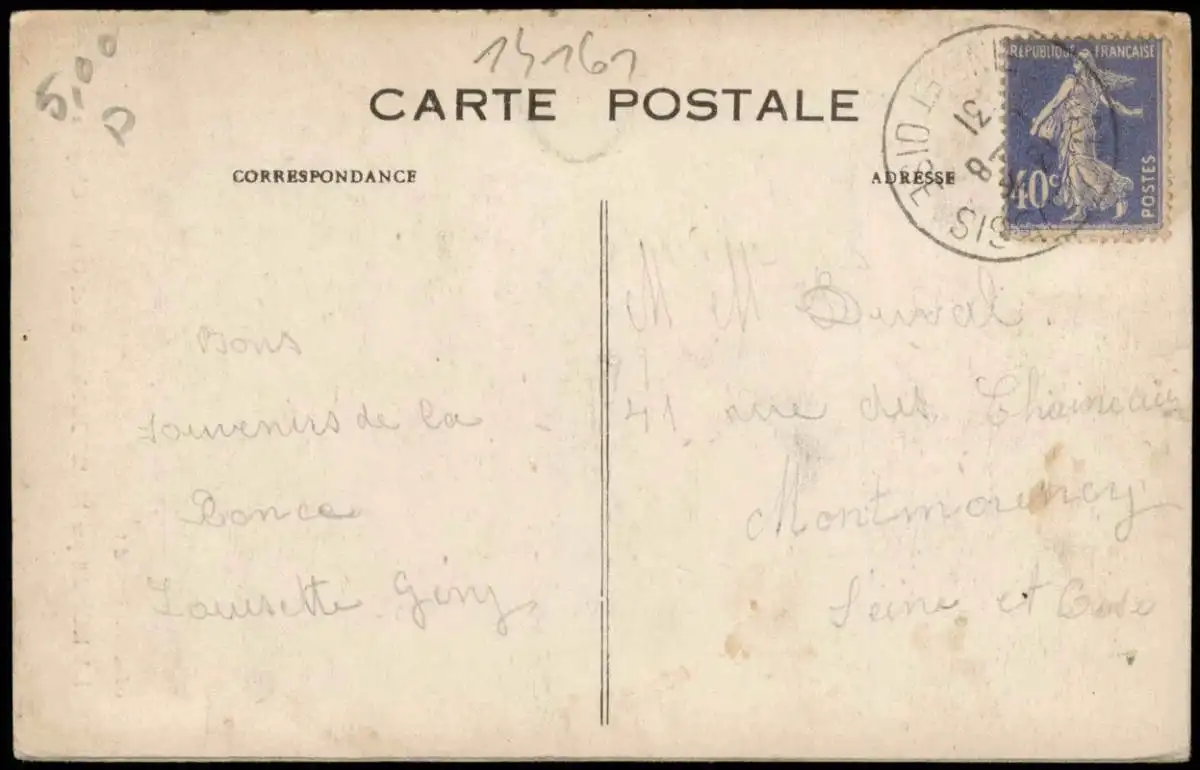 5,00
D
CARTE POSTALE
CORRESPONDANCE
ADRESSE
RÉPUBLIQUE FRANÇAISE
40c
POSTES
ET OISE
31
Bons
souvenirs de la
Rance
Louisette
M Mme Duval.
41 rue des
Montmorency
Seine et Oise